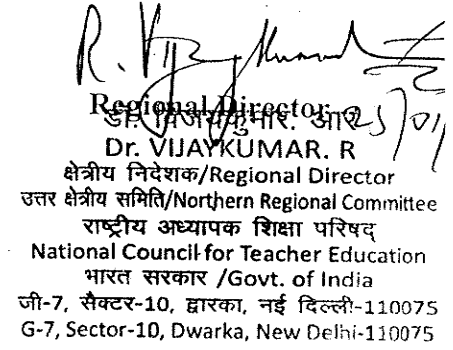 R. Vijaykumar
Regional Director
डॉ. विजयकुमार. आर
25/01
Dr. VIJAYKUMAR. R
क्षेत्रीय निदेशक/Regional Director
उत्तर क्षेत्रीय समिति/Northern Regional Committee
राष्ट्रीय अध्यापक शिक्षा परिषद्
National Council for Teacher Education
भारत सरकार /Govt. of India
जी-7, सैक्टर-10, द्वारका, नई दिल्ली-110075
G-7, Sector-10, Dwarka, New Delhi-110075